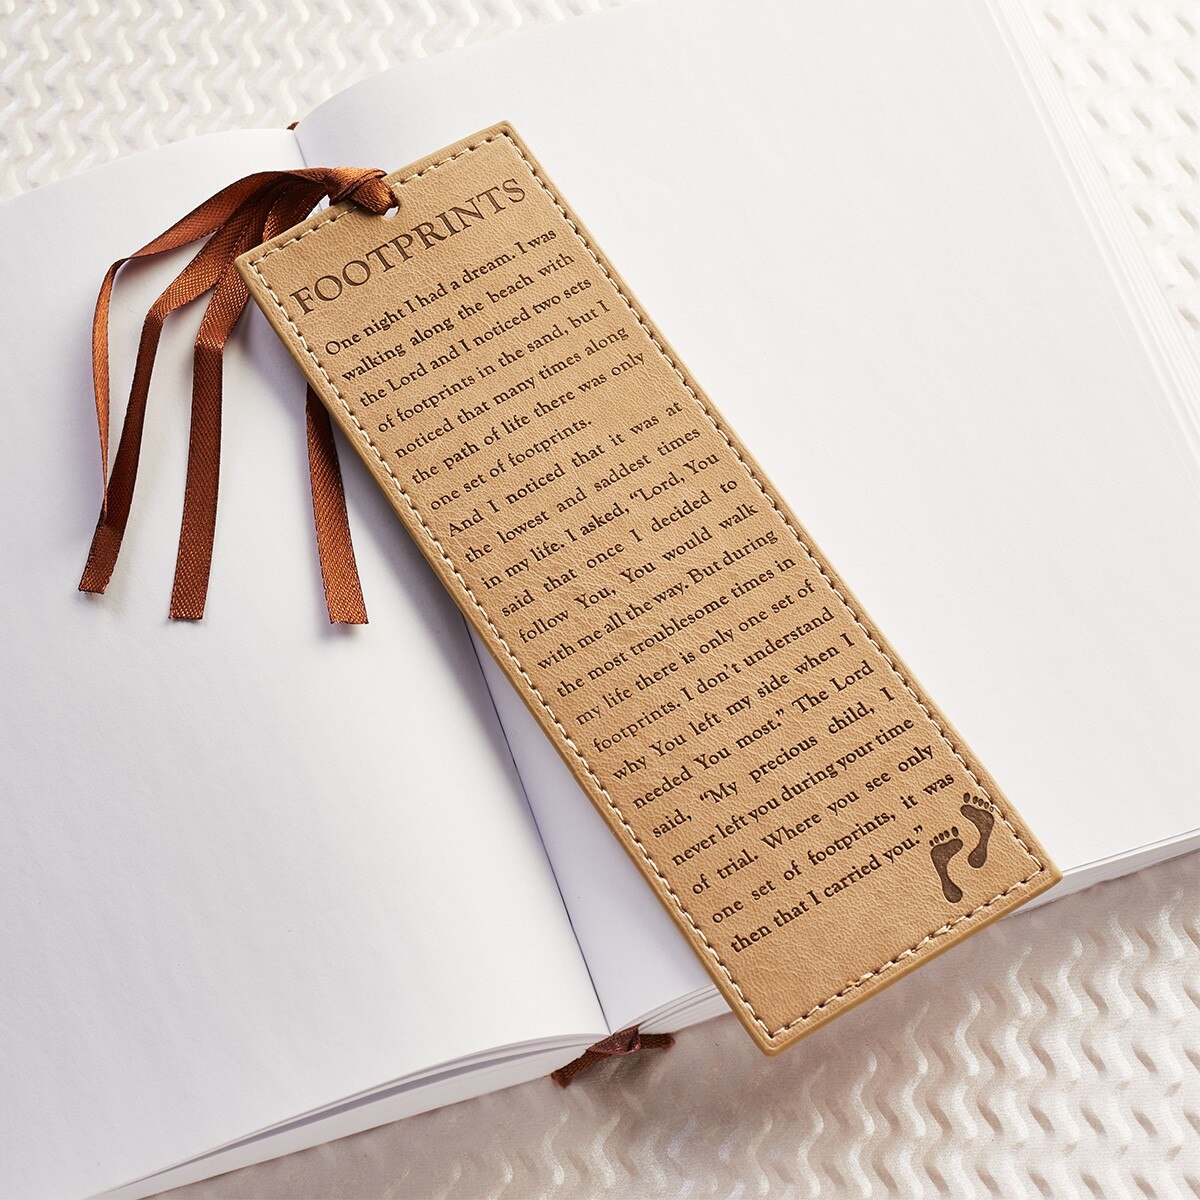 FOOTPRINTS
One night I had a dream. I was
walking along the beach with
the Lord and I noticed two sets
of footprints in the sand, but I
noticed that many times along
the path of life there was only
one set of footprints.
And I noticed that it was at
the lowest and saddest times
in my life. I asked, “Lord, You
said that once I decided to
follow You, You would walk
with me all the way. But during
the most troublesome times in
my life there is only one set of
footprints. I don’t understand
why You left my side when I
needed You most.” The Lord
said, “My precious child, I
never left you during your time
of trial. Where you see only
one set of footprints, it was
then that I carried you.”